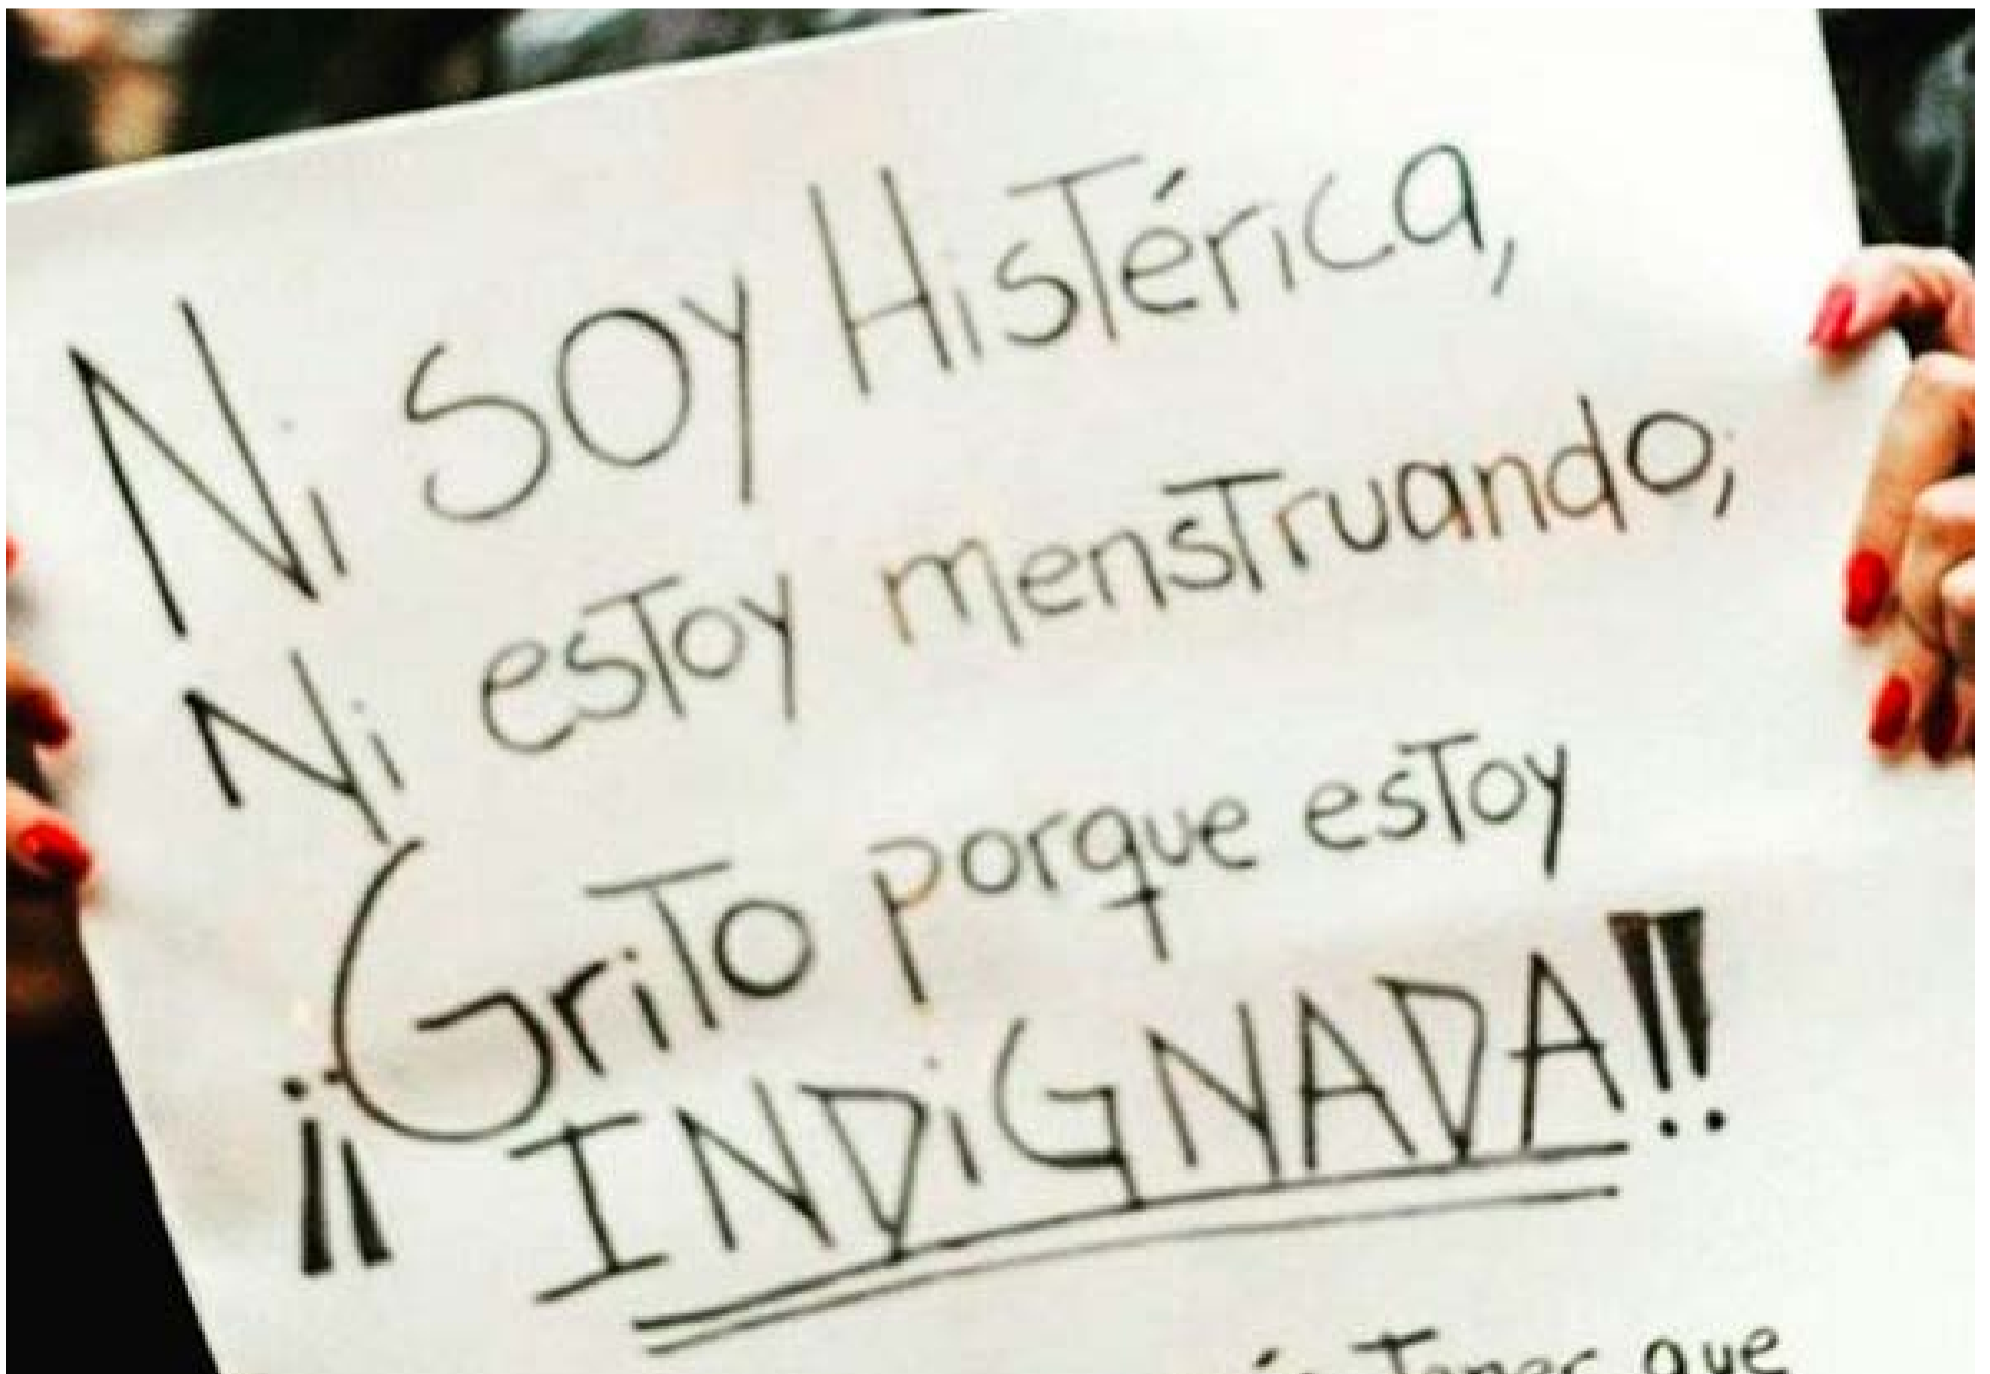 Ni soy Histérica,
Ni estoy menstruando,
Grito porque estoy
¡¡INDiGNADA!!
que